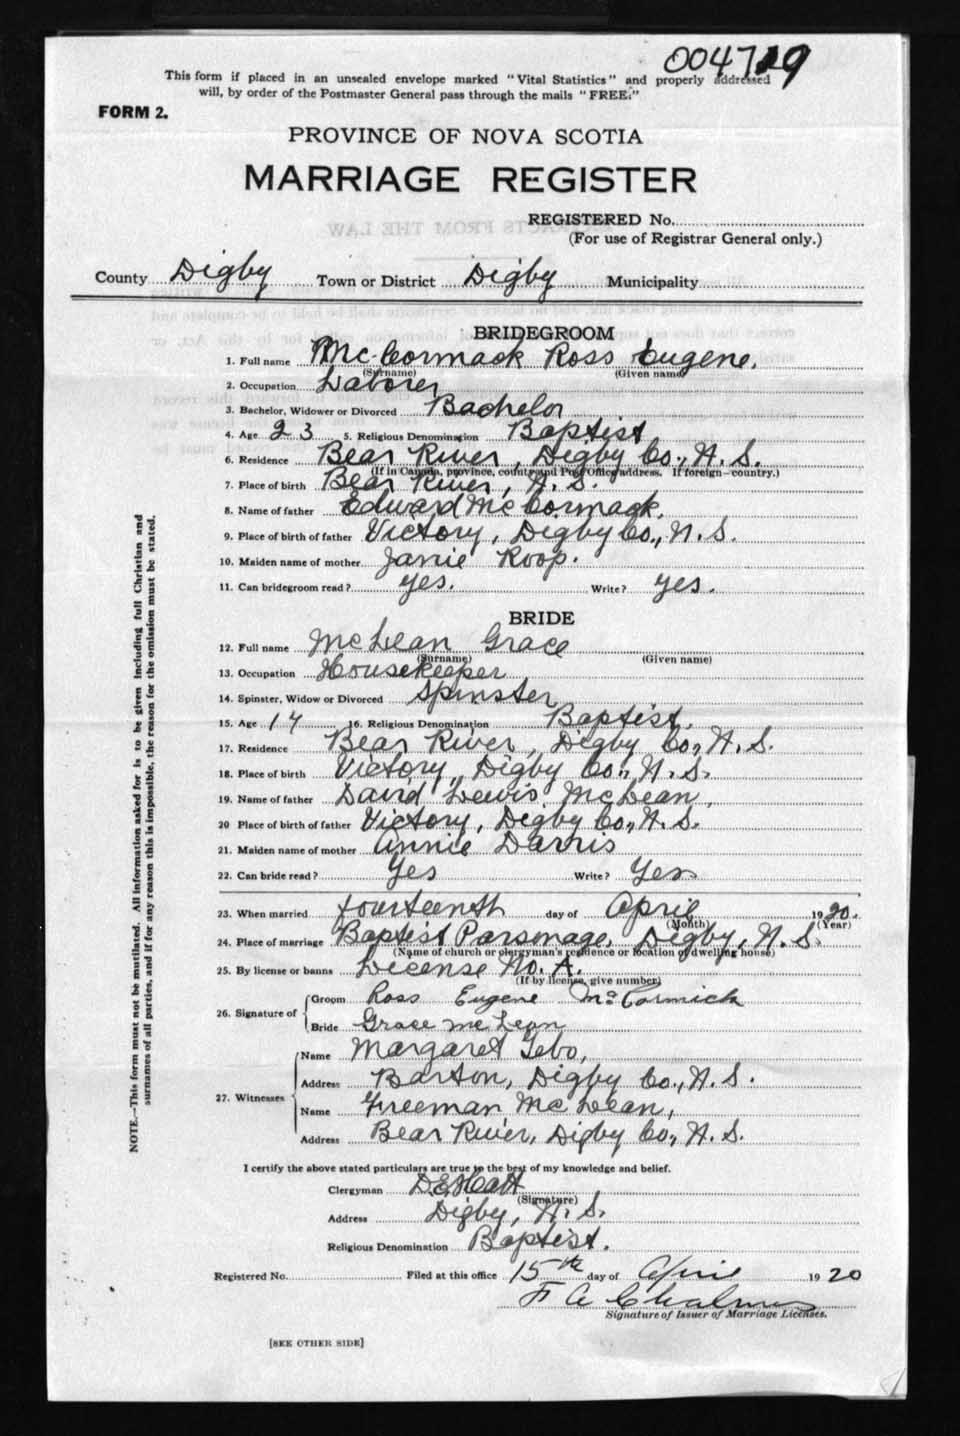 004729
This form if placed in an unsealed envelope marked "Vital Statistics" and properly addressed
will, by order of the Postmaster General pass through the mails "FREE."
FORM 2.
PROVINCE OF NOVA SCOTIA
MARRIAGE REGISTER
REGISTERED No.
(For use of Registrar General only.)
County Digby Town or District Digby Municipality
BRIDEGROOM
1. Full name McCormack Ross Eugene.
(Surname) (Given name)
2. Occupation Laborer
3. Bachelor, Widower or Divorced Bachelor
4. Age 23 5. Religious Denomination Baptist
6. Residence Bear River, Digby Co., N.S.
(If in Canada, province, county and Post Office address. If foreign—country.)
7. Place of birth Bear River, N.S.
8. Name of father Edward McCormack.
9. Place of birth of father Victory, Digby Co., N.S.
10. Maiden name of mother Janie Roop.
11. Can bridegroom read? yes. Write? yes.
BRIDE
12. Full name McLean Grace
(Surname) (Given name)
13. Occupation Housekeeper
14. Spinster, Widow or Divorced Spinster
15. Age 16. Religious Denomination Baptist.
17. Residence Bear River, Digby Co., N.S.
18. Place of birth Victory, Digby Co., N.S.
19. Name of father David Lewis McLean,
20 Place of birth of father Victory, Digby Co., N.S.
21. Maiden name of mother Annie Darris
22. Can bride read? Yes Write? Yes
23. When married fourteenth day of April 1920.
(Month) (Year)
24. Place of marriage Baptist Parsonage, Digby, N.S.
(Name of church or clergyman's residence or location of dwelling house)
25. By license or banns License No. A.
(If by license, give number)
26. Signature of Groom Ross Eugene McCormick
Bride Grace McLean
27. Witnesses Name Margaret Tebo,
Address Barton, Digby Co., N.S.
Name Freeman McLean,
Address Bear River, Digby Co., N.S.
I certify the above stated particulars are true to the best of my knowledge and belief.
Clergyman D.E. Hatt
(Signature)
Address Digby, N.S.
Religious Denomination Baptist.
Registered No. Filed at this office 15th day of April 1920
F A Chalmers
Signature of Issuer of Marriage Licenses.
[SEE OTHER SIDE]
NOTE.—This form must not be mutilated. All information asked for is to be given including full Christian and
surnames of all parties, and if for any reason this is impossible, the reason for the omission must be stated.